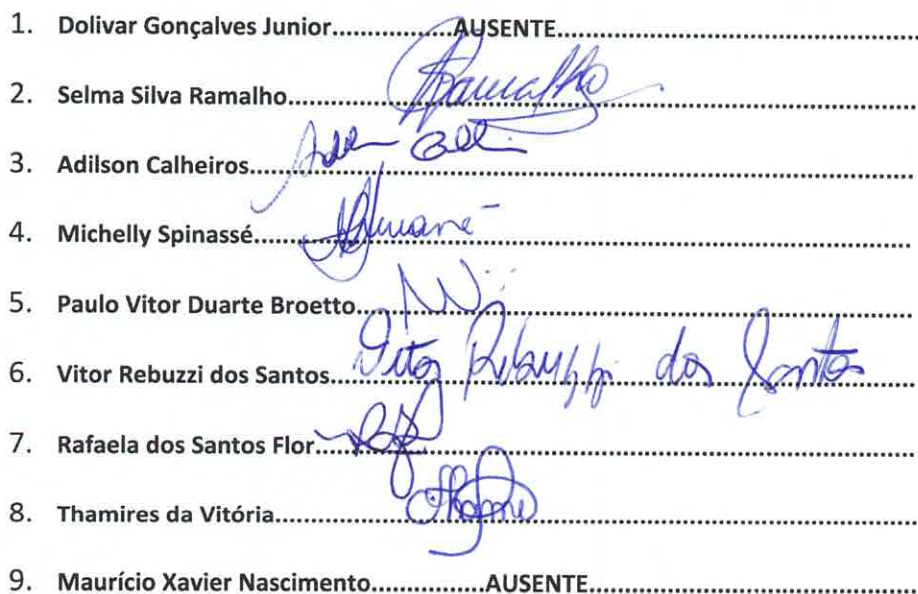 1. Dolivar Gonçalves Junior..................AUSENTE......................................................
2. Selma Silva Ramalho.................Ramalho.............................................
3. Adilson Calheiros..............................................................................
4. Michelly Spinassé..............................................................................
5. Paulo Vitor Duarte Broetto..............................................................................
6. Vitor Rebuzzi dos Santos....Vitor Rebuzzi dos Santos
7. Rafaela dos Santos Flor..............................................................................
8. Thamires da Vitória..............................................................................
9. Maurício Xavier Nascimento.................AUSENTE................................................